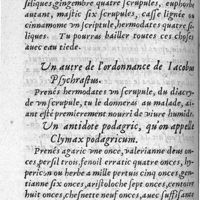 seliques, gingembre quatre scrupules, euphorbe
autant, mastic six scrupules, casse lignée ou
cinnamome vn scriptule, hermodates quatre si-
liques. Tu pourras bailler toutes ces choses
auec eau tiede.
Vn autre de l'ordonnance de Iacobus
Psychrastus.
Prenés hermodates vn scrupule, du diacry-
de vn scrupule, tu le donneras au malade, aï-
ant esté premierement nourri de viure humide.
Vn antidote podagric, qu'on appelle
Clymax podagricum.
Prenés agaric vne once, valerianne deus on-
ces, persil trois, fenoil erratic quatre onces, hy-
pericon ou herbe a mille pertuis cinq onces, gen-
tianne six onces, aristoloche sept onces, centoire
huit onces, chesnette neuf onces, auec suffisante